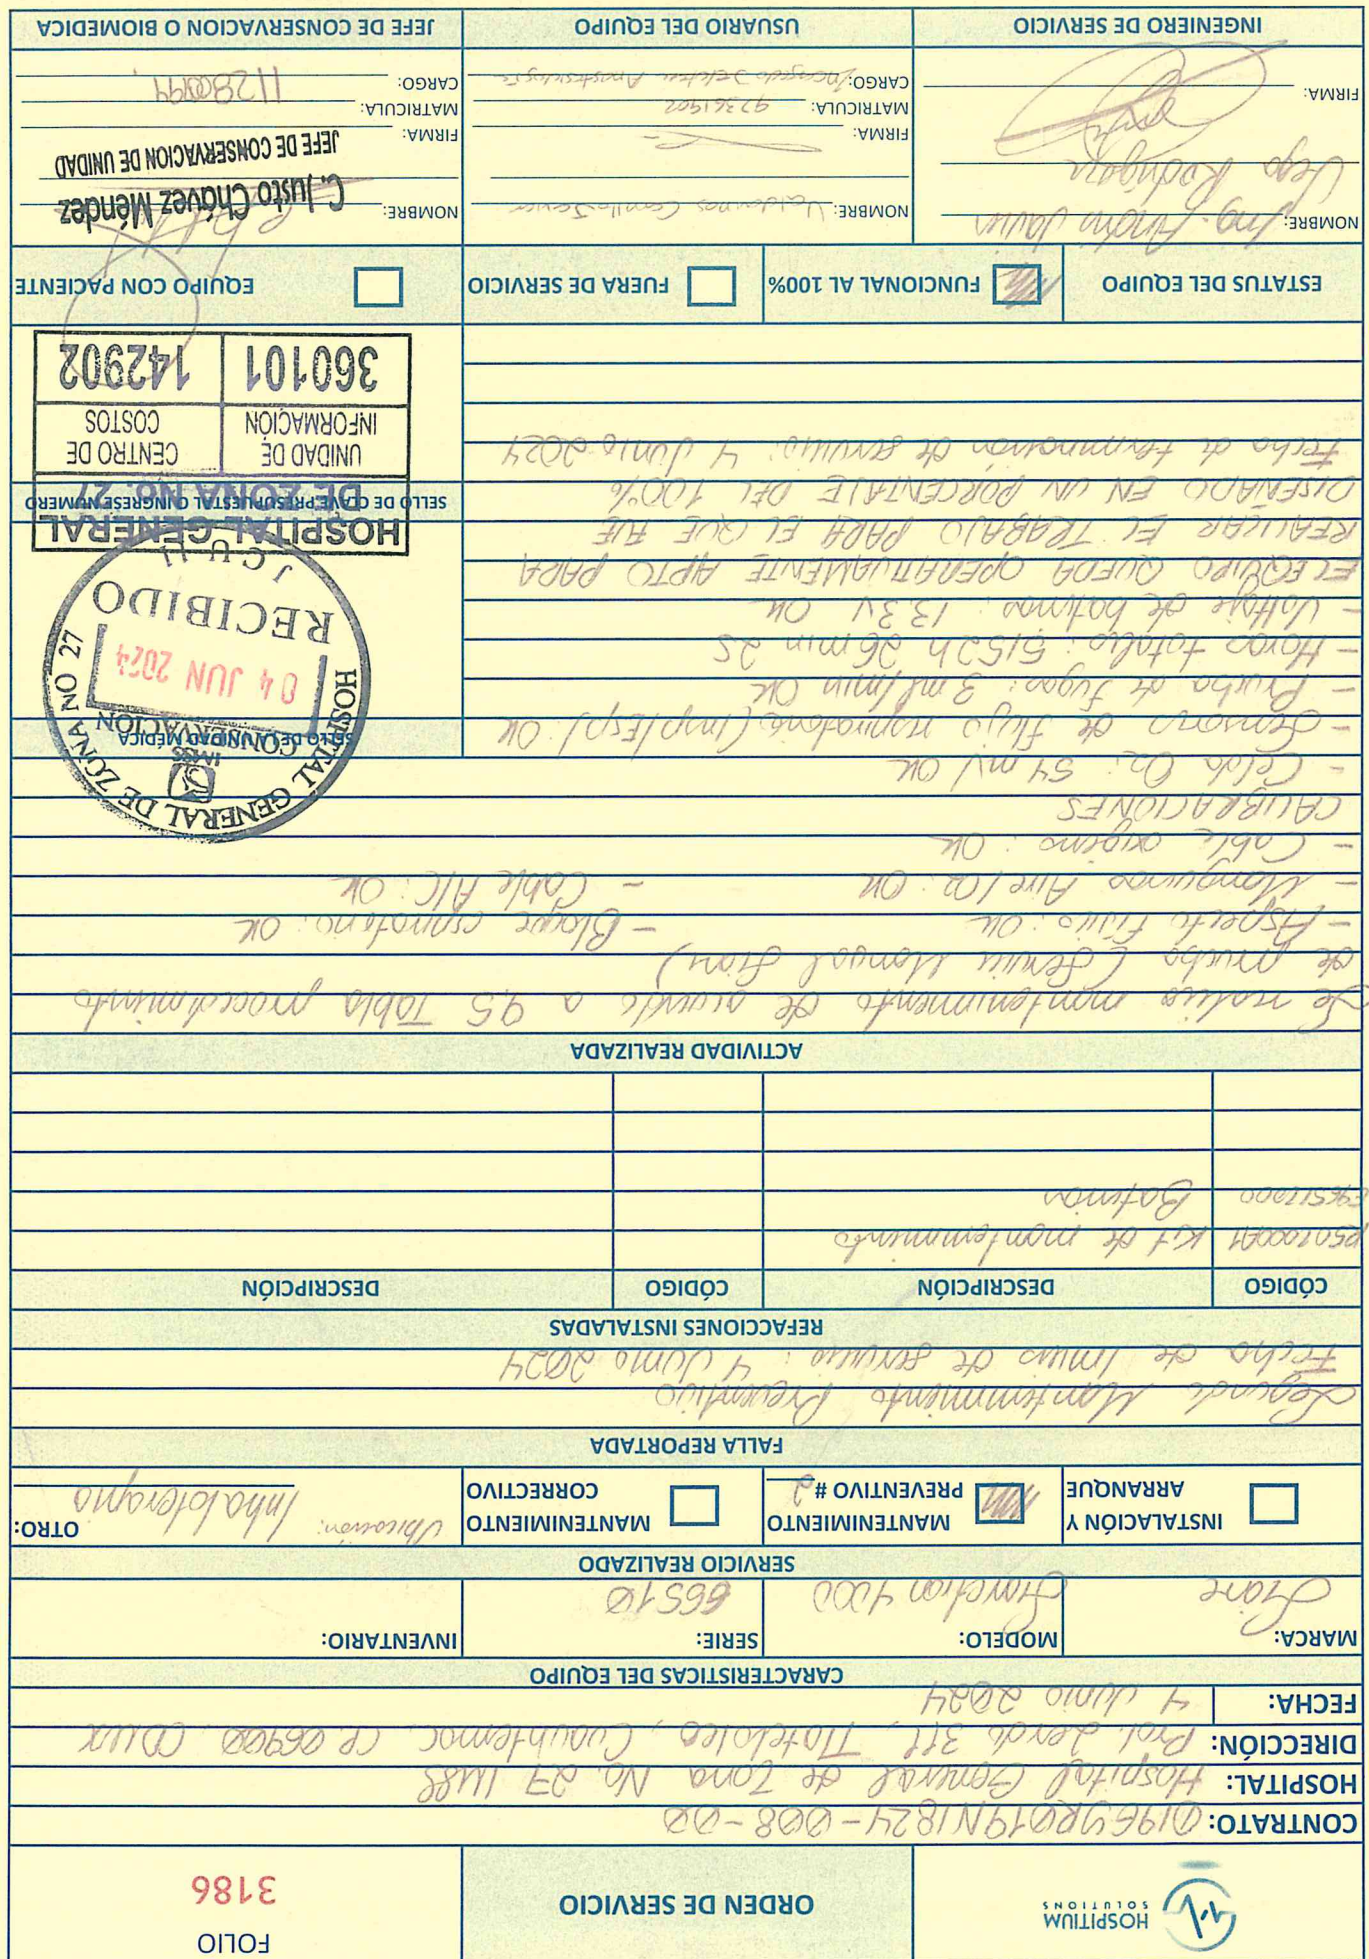 HOSPITIUM
SOLUTIONS
ORDEN DE SERVICIO
FOLIO
3186
CONTRATO: 0196YR019N1824-008-00
HOSPITAL: Hospital General de Zona No. 27 IMSS
DIRECCIÓN: Prol. Lerdo 311, Tlatelolco, Cuauhtemoc, CP. 06900, CDMX
FECHA: 4 Junio 2024
CARACTERISTICAS DEL EQUIPO
MARCA: MODELO: SERIE: INVENTARIO:
66510
SERVICIO REALIZADO
INSTALACIÓN Y ARRANQUE
MANTENIMIENTO PREVENTIVO # 2
MANTENIMIENTO CORRECTIVO
Ubicación: Inhaloterapia
OTRO:
FALLA REPORTADA
Segundo Mantenimiento Preventivo
Fecha de Inicio de servicio: 4 Junio 2024
REFACCIONES INSTALADAS
CÓDIGO DESCRIPCIÓN CÓDIGO DESCRIPCIÓN
Kit de mantenimiento
Baterias
ACTIVIDAD REALIZADA
Se realiza mantenimiento de acuerdo a 9.5 Tabla procedimiento
de prueba (Service Manual Siare)
- Aspecto Fisico: OK - Bloque espiratorio: OK
- Mangueras Aire/O2: OK - Cable A/C: OK
- Cable oxigeno: OK
CALIBRACIONES
- Celda O2: 54 mV OK
- Sensores de flujo respiratorio (Insp/Esp): OK
- Prueba de fugas: 3 ml/min OK
- Horas totales: 5152 h 26 min 2s
- Voltaje de baterias: 13.3V OK
EL EQUIPO QUEDA OPERATIVAMENTE APTO PARA
REALIZAR EL TRABAJO PARA EL QUE FUE
DISEÑADO EN UN PORCENTAJE DEL 100%
Fecha de terminación de servicio: 4 Junio 2024
SELLO DE LA UNIDAD MÉDICA
HOSPITAL GENERAL DE ZONA NO 27
IMSS
CONSERVACION
04 JUN 2024
RECIBIDO
J C U H
SELLO DE CLAVE PRESUPUESTAL O INGRESE NÚMERO
HOSPITAL GENERAL
DE ZONA No. 27
UNIDAD DE INFORMACIÓN
CENTRO DE COSTOS
360101 142902
ESTATUS DEL EQUIPO
FUNCIONAL AL 100%
FUERA DE SERVICIO
EQUIPO CON PACIENTE
NOMBRE: Ing. Javier
Vega Rodriguez
FIRMA:
INGENIERO DE SERVICIO
NOMBRE: Javier
FIRMA:
MATRICULA: 97361902
CARGO:
USUARIO DEL EQUIPO
NOMBRE: C. Justo Chávez Méndez
JEFE DE CONSERVACION DE UNIDAD
FIRMA:
MATRICULA:
CARGO:
JEFE DE CONSERVACION O BIOMEDICA